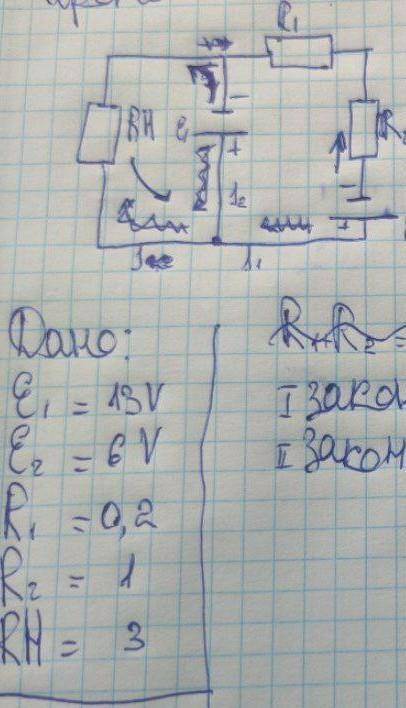 R₁
−
RH
ε₁
+
R₂
−
+
I₂
I₁
Дано:
ε₁ = 13V
ε₂ = 6V
R₁ = 0,2
R₂ = 1
RH = 3
I закон
II закон